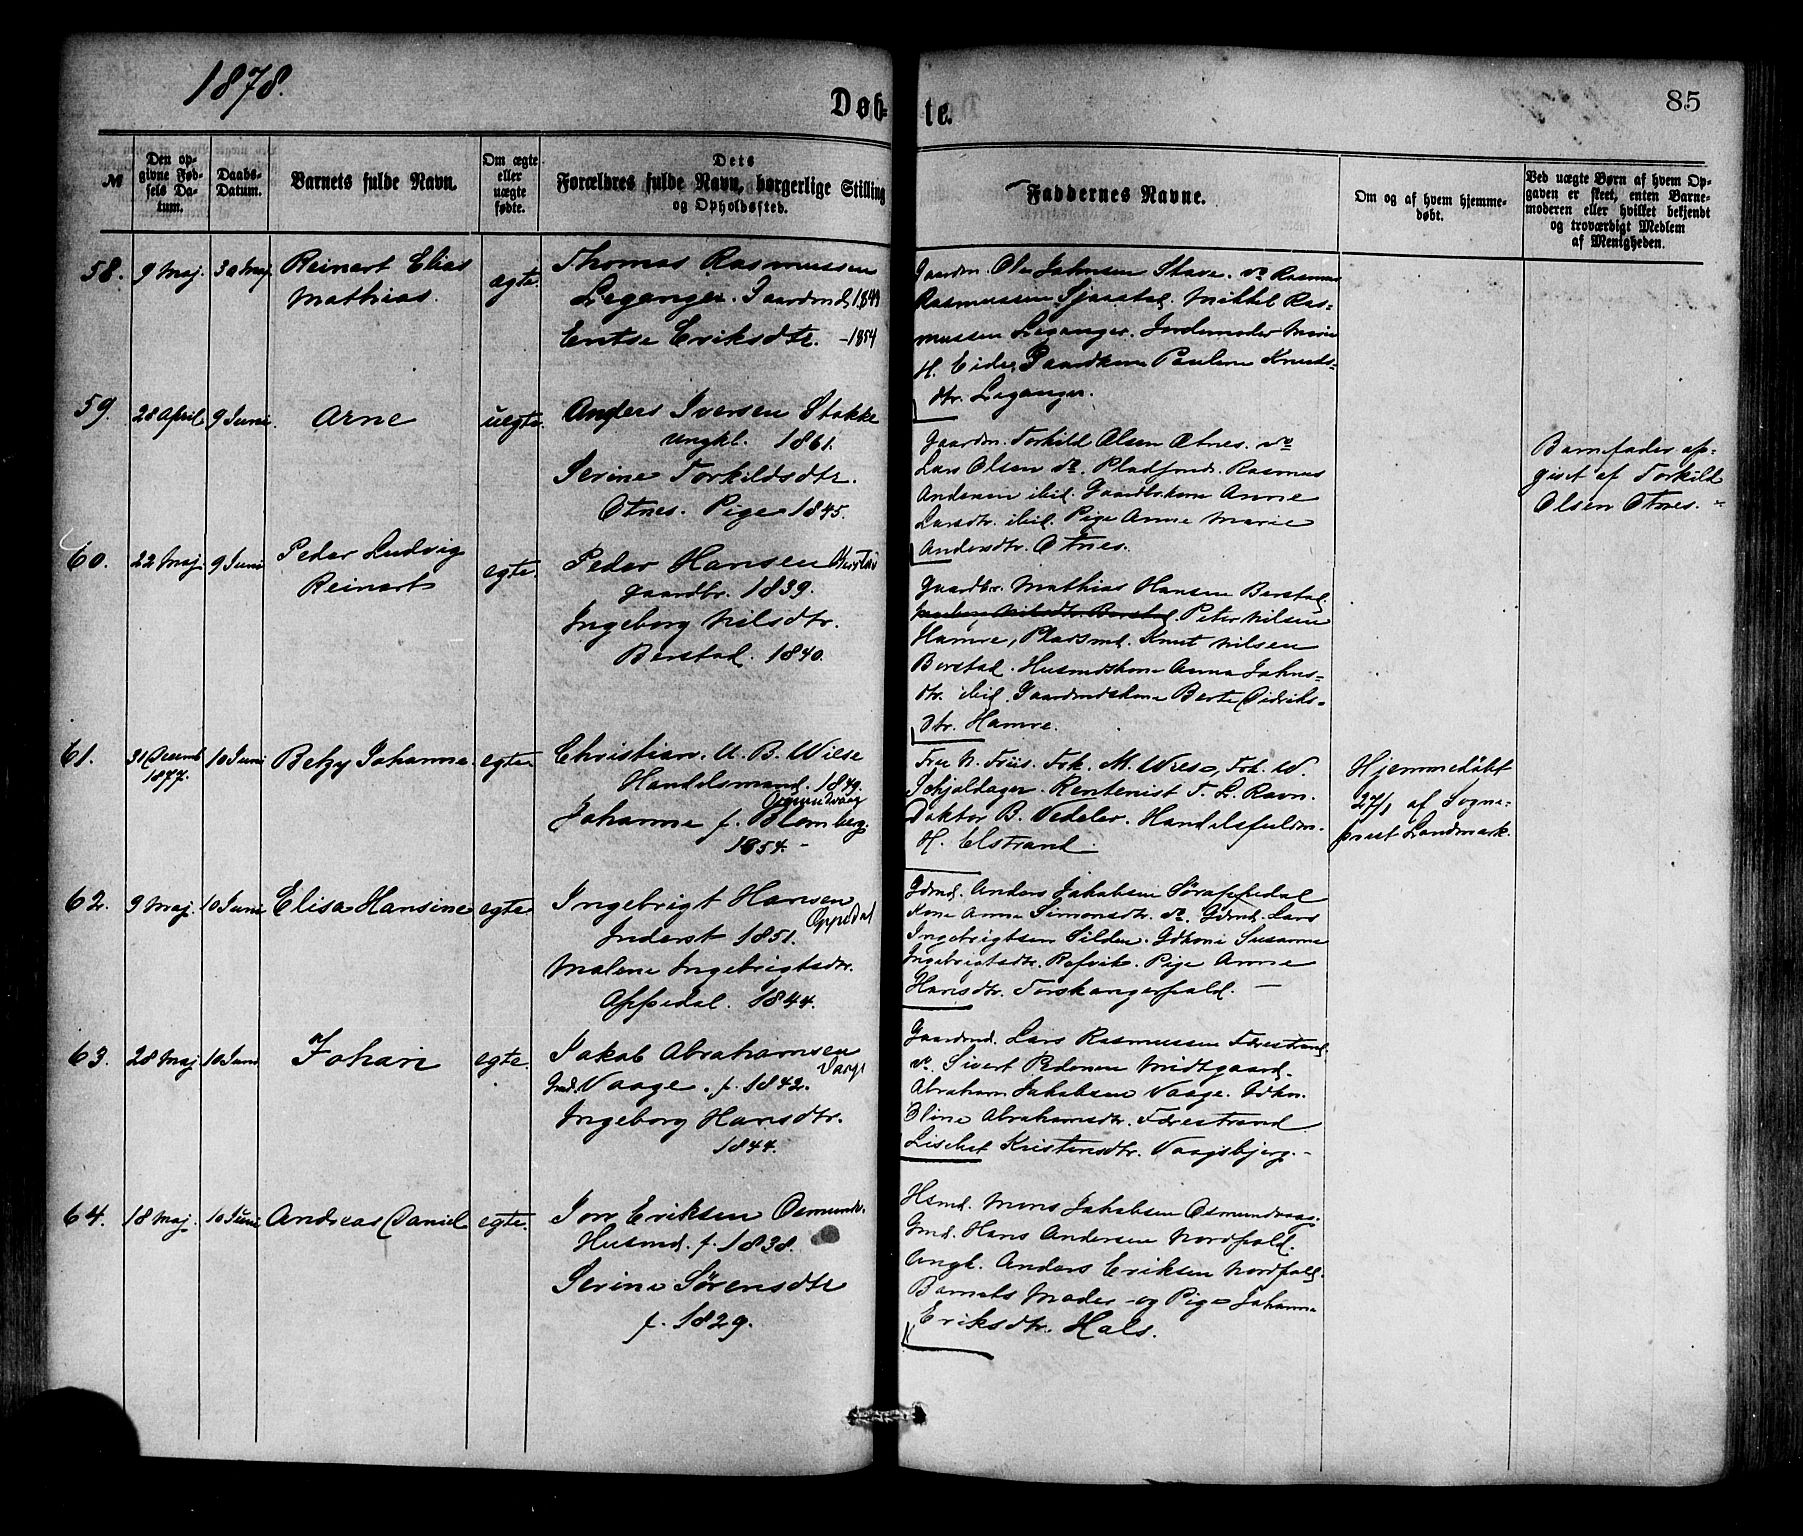 1878.
Døb-
te.
85
№
Den op-
givne Fød-
sels Da-
tum.
Daabs-
Datum.
Barnets fulde Navn.
Om ægte
eller
uægte
fødte.
Dets
Forældres fulde Navn, borgerlige Stilling
og Opholdssted.
Faddernes Navne.
Om og af hvem hjemme-
døbt.
Ved uægte Børn af hvem Op-
gaven er skeet, enten Barne-
moderen eller hvilket bekjendt
og troværdigt Medlem
af Menigheden.
58.
9 Maj.
30 Maj
Reinert Elias
Mathias.
egte.
Thomas Rasmussen
Leganger. Gaardmd 1849
Entse Eriksdtr. - 1854
Gaardm. Ole Johnsen Stave. do Rasmus
Rasmussen Sjaastad. Mikkel Ras-
mussen Leganger. Jordemoder Marie
H. Eide, Gaardkone Pauline Knuds-
dtr. Leganger.
59.
28 April
9 Juni.
Arne
uegte.
Anders Iversen Stokke
ungkl. 1861.
Serine Torkildsdtr.
Otnes. Pige 1845.
Gaardm. Torkild Olsen Otnes. do
Lars Olsen do. Pladsmd. Rasmus
Andersen ibid. Gaardbkone Anne
Larsdtr. ibid. Pige Anne Marie
Andersdtr. Otnes.
Barnefader op-
givet af Torkild
Olsen Otnes. -
60.
22 Maj
9 Juni
Peder Ludvig
Reinert
egte.
Peder Hansen Berstad
gaardbr. 1839.
Ingeborg Nilsdtr.
Berstad. 1840.
Gaardbr. Mathias Hansen Berstad.
Nilsdtr. Berstad. Peter Nilsen
Hamre, Pladsmd. Knut Nilsen
Berstad. Husmdskone Anna Johns-
dtr. ibid. Gaardmdskone Berte Didriks-
dtr. Hamre.
61.
31 Decemb
1877.
10 Juni
Betzy Johanne
egte
Christian. U. B. Wilse
Handelsmand. 1849.
Osmundvaag
Johanne f. Blomberg.
1854. -
Fru N. Friis. Frk. M. Wilse, Frk. W.
Schjoldager. Rentenist T. L. Ravn.
Doktor B. Vedeler. Handelsfuldm.
H. Elstrand.
Hjemmedøbt
27/1 af Sogne-
prest Landmark.
62.
9 Maj.
10 Juni
Elisa Hansine
egte
Ingebrigt Hansen
Inderst 1851. Oppedal
Malene Ingebrigtsdtr.
Oppedal. 1844.
Gdmd. Anders Jakobsen Sørøppedal
Kone Anne Simonsdtr. do. Gdmd. Lars
Ingebrigtsen Silden. Gdkone Susanne
Ingebrigtsdtr. Refvik. Pige Anne
Hansdtr. Torskangerpold. -
63.
28 Maj
10 Juni
Johan
egte.
Jakob Abrahamsen
Gmd. Vaage. f. 1842. Vaage
Ingeborg Hansdtr.
1844.
Gaardmd. Lars Rasmussen Førestrand
do. Sivert Pedersen Midtgaard.
Abraham Jakobsen Vaage. Gdkn.
Oline Abrahamsdtr. Førestrand
Lisebet Kristensdtr. Vaagsbjerg. -
64.
18 Maj
10 Juni
Andreas Daniel
egte.
Jon Eriksen Osmundv.
Husmd. f. 1838.
Serine Sørensdtr
f. 1829.
Hsmd. Mons Jakobsen Osmundvaag.
Gmd. Hans Andersen Nordpold.
Ungk. Anders Eriksen Nordpold.
Barnets Moder - og Pige Johanne
Eriksdtr. Hals.